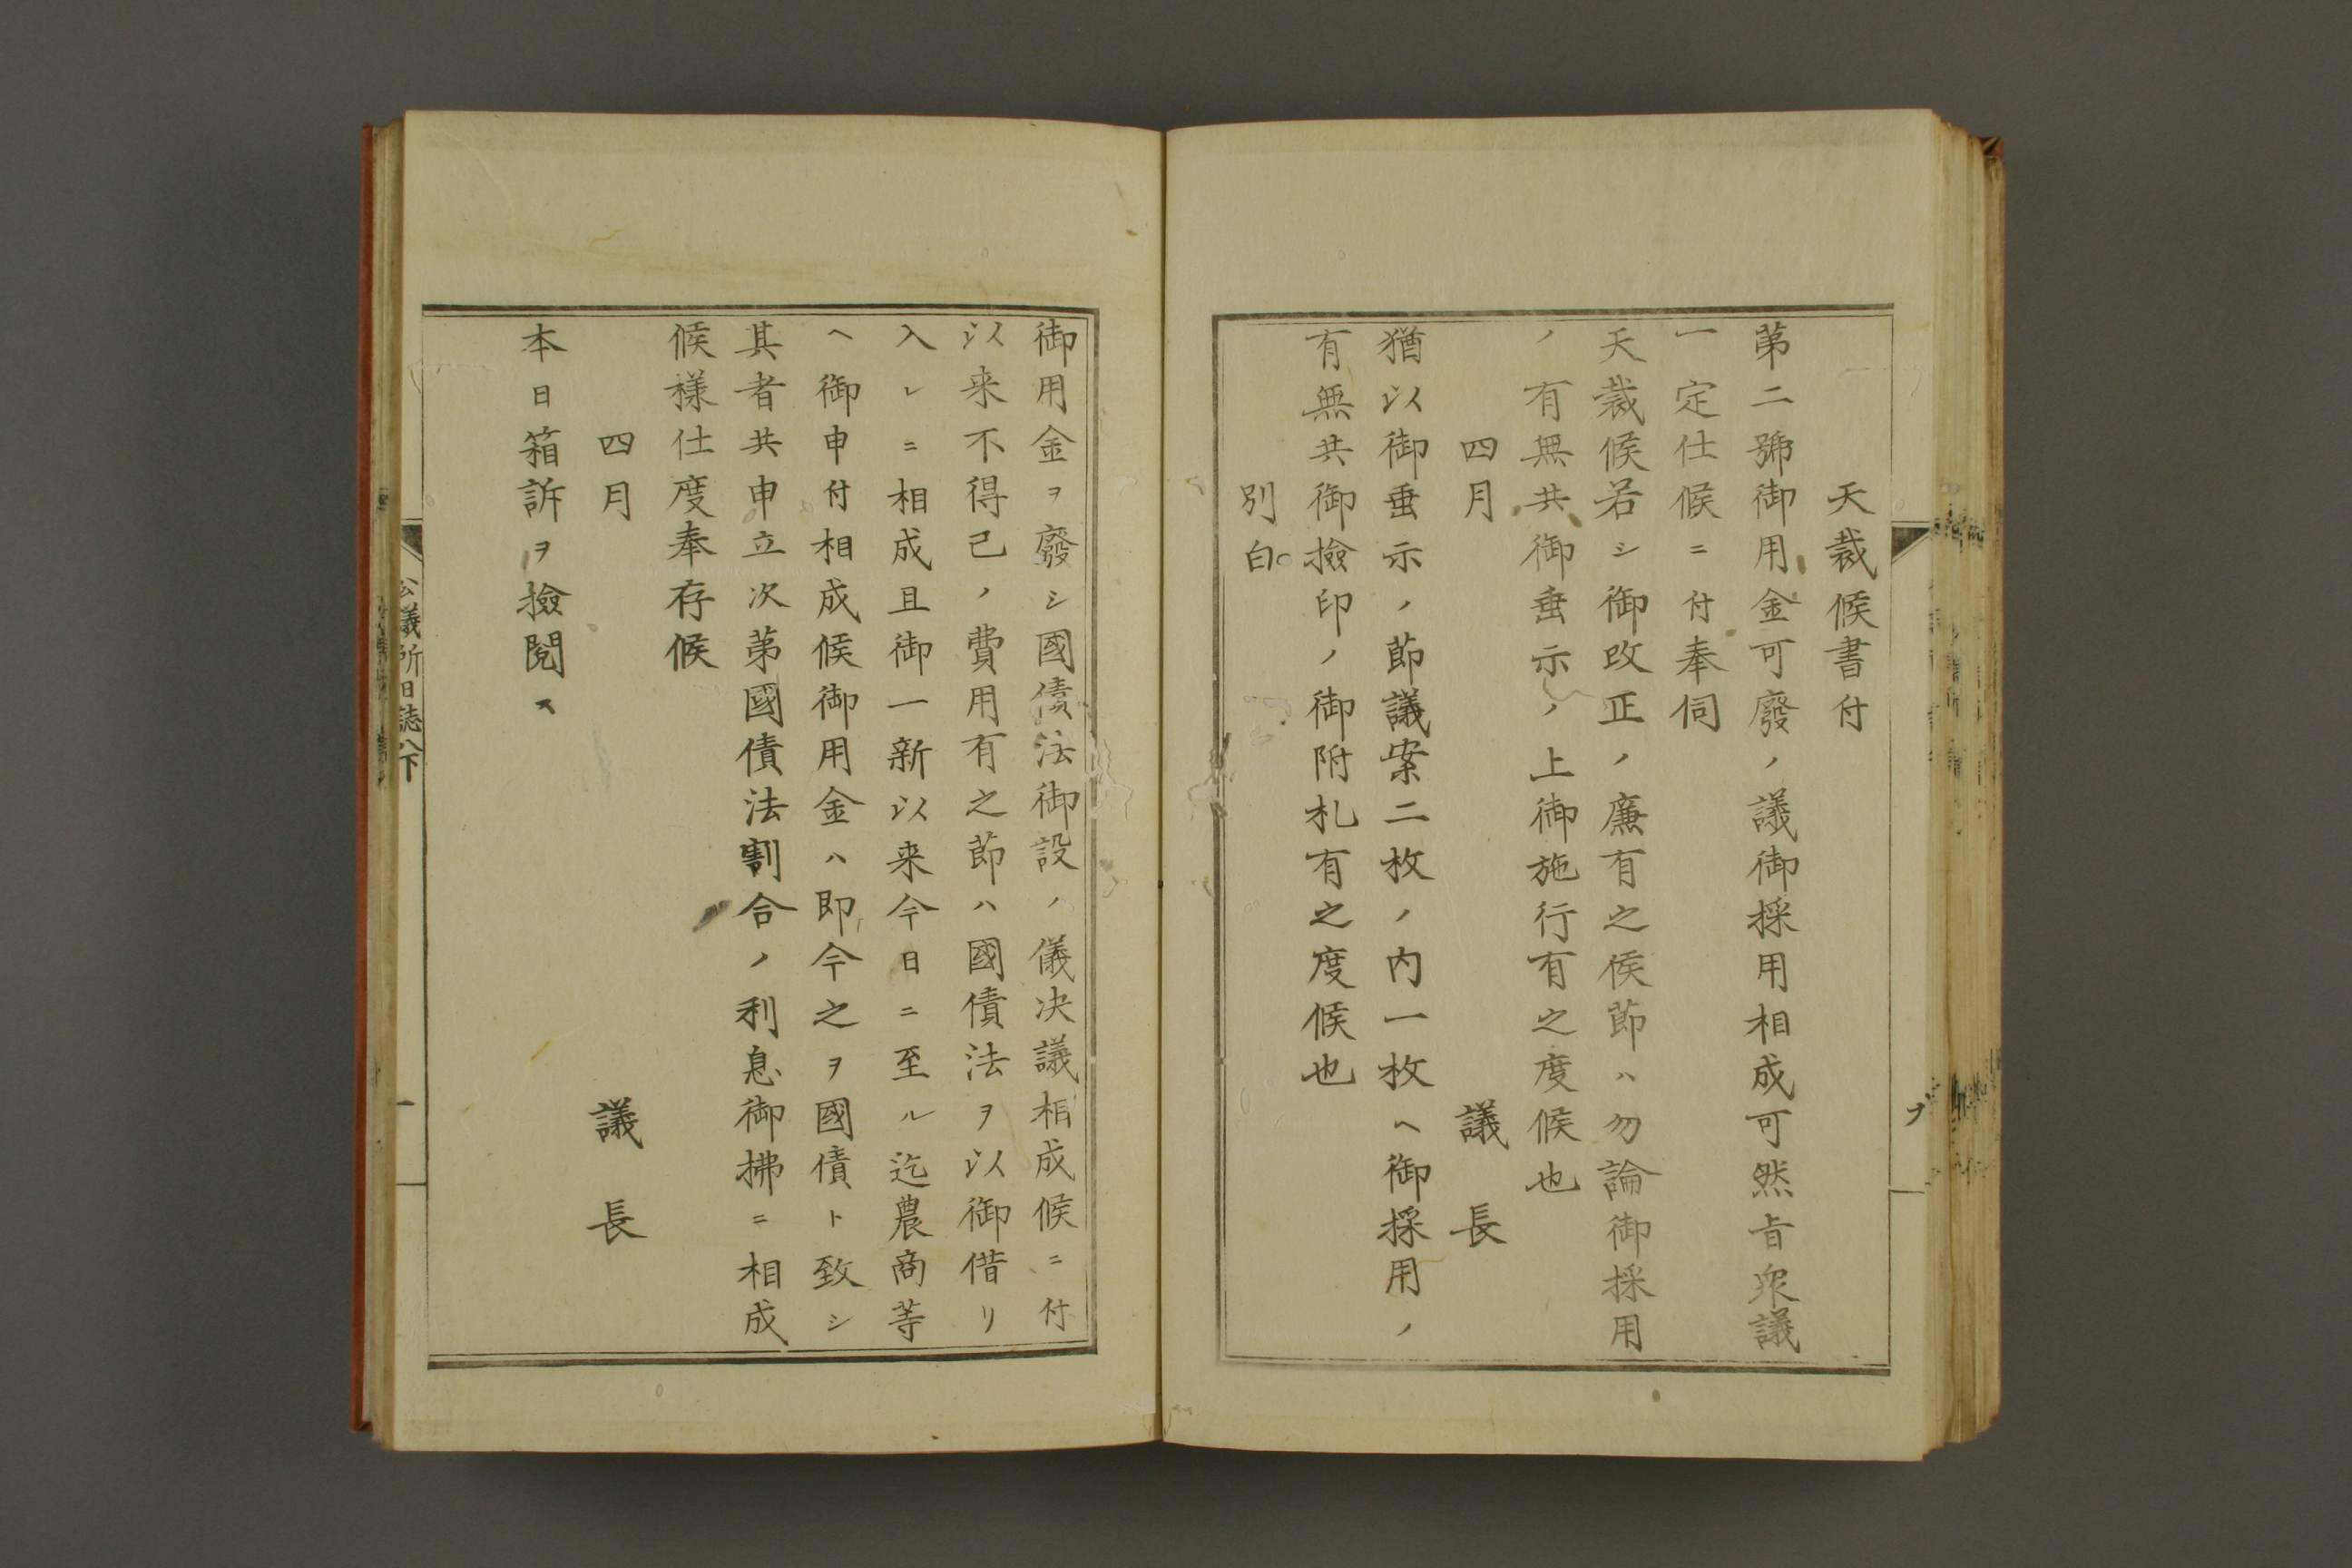 天裁候書付
第二號御用金可廢ノ議御採用相成可然旨衆議
一定仕候ニ付奉伺
天裁候若シ御改正ノ廉有之侯節ハ勿論御採用
ノ有無共御垂示ノ上御施行有之度候也
四月　議長
猶以御垂示ノ節議案二枚ノ内一枚ヘ御採用ノ
有無共御撿印ノ御附札有之度候也
別白
御用金ヲ廢シ國債法御設ノ儀決議相成候ニ付
以来不得已ノ費用有之節ハ國債法ヲ以御借リ
入レニ相成且御一新以来今日ニ至ル迄農商等
ヘ御申付相成候御用金ハ即今之ヲ國債ト致シ
其者共申立次第國債法割合ノ利息御拂ニ相成
候様仕度奉存候
四月　議長
本日箱訴ヲ撿閱ス
公議所日誌八下
一